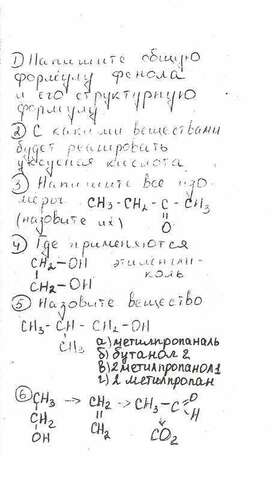 1) Напишите общую
формулу фенола
и его структурную
формулу
2) С какими веществами
будет реагировать
уксусная кислота
3 Напишите все изо
меры CH3-CH2-C-CH3
(назовите их) O
4 Где применяются
CH2-OH этиленгли-
CH2-OH коль
5 Назовите вещество
CH3-CH-CH2-OH
CH3 а) метилпропаналь
б) бутанол 2
в) 2 метилпропанол 1
г) 2 метилпропан
6 CH3 → CH2 → CH3-C O
CH2 CH2 H
OH CO2